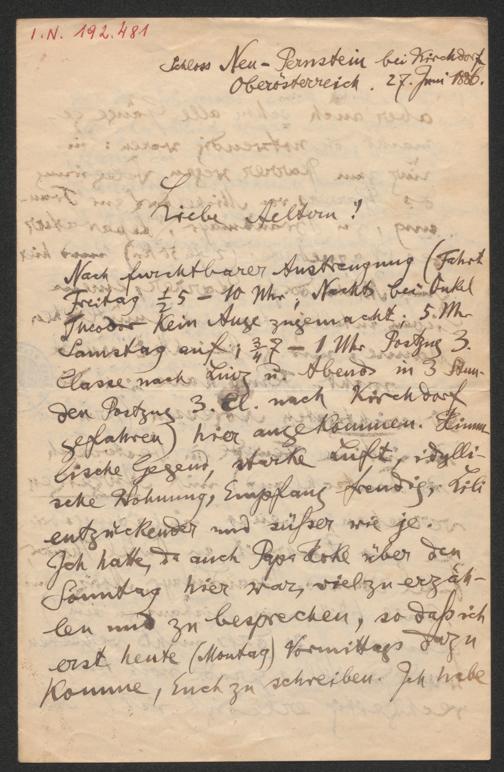 I.N. 192.481
Schloss Neu-Pernstein bei Kirchdorf
Oberösterreich. 27. Juni 1886.
Liebe Aeltern!
Nach furchtbarer Anstrengung (Fahrt
Freitag ½5 – 10 Uhr, Nachts bei Onkel
Theodor kein Auge zugemacht; 5. Uhr
Samstag auf; ¾7 – 1 Uhr Postzug 3.
Classe nach Linz u. Abends in 3 Stun-
den Postzug 3. Cl. nach Kirchdorf
gefahren) hier angekommen. Himm-
lische Gegend, starke Luft, idylli-
sche Wohnung, Empfang freudig, Lili
entzückender und süßer wie je.
Ich hatte, da auch Papa über den
Sonntag hier war, viel zu erzäh-
len und zu besprechen, so daß ich
erst heute (Montag) Vormittags dazu
komme, Euch zu schreiben. Ich habe